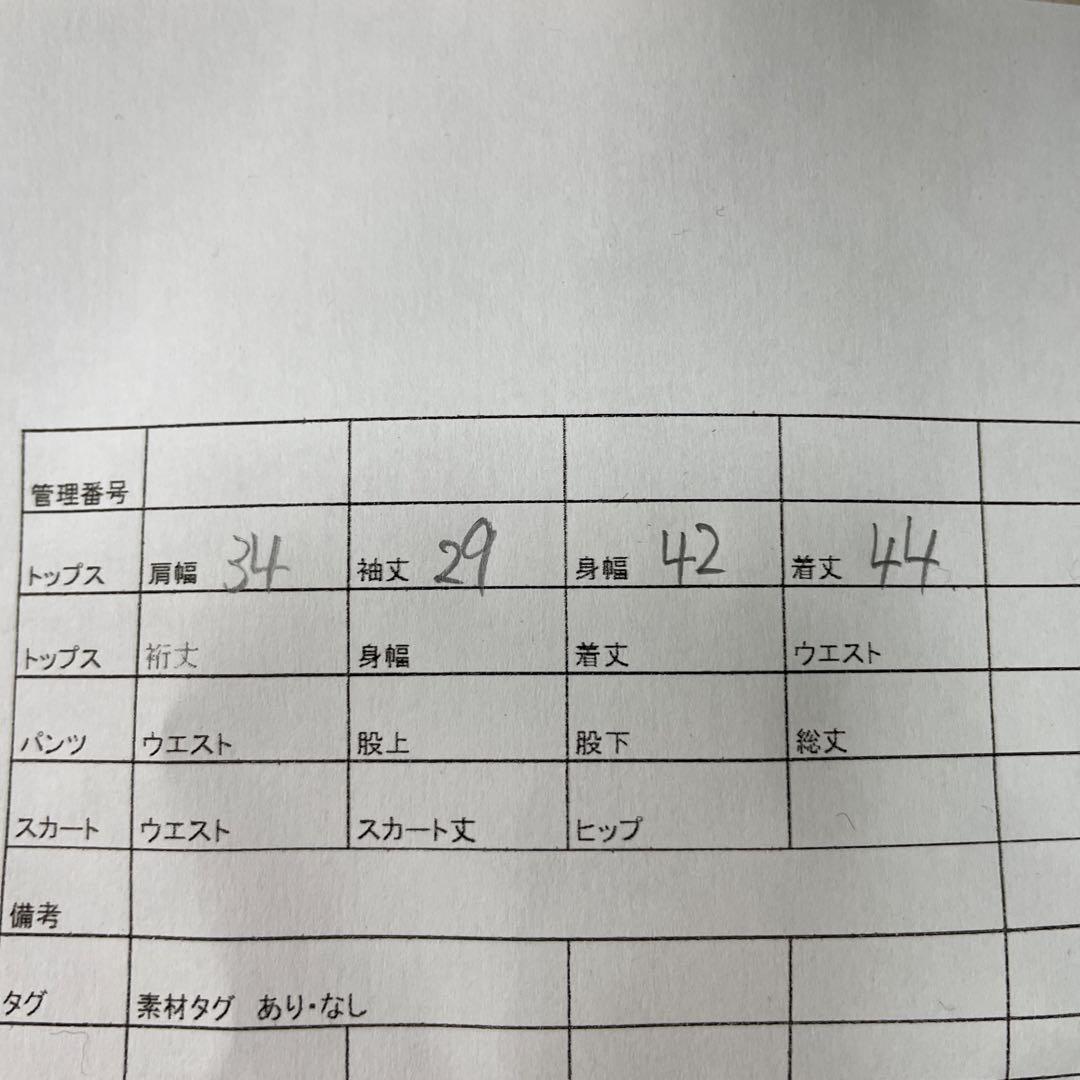 管理番号
トップス 肩幅 34 袖丈 29 身幅 42 着丈 44
トップス 裄丈 身幅 着丈 ウエスト
パンツ ウエスト 股上 股下 総丈
スカート ウエスト スカート丈 ヒップ
備考
タグ 素材タグ あり・なし